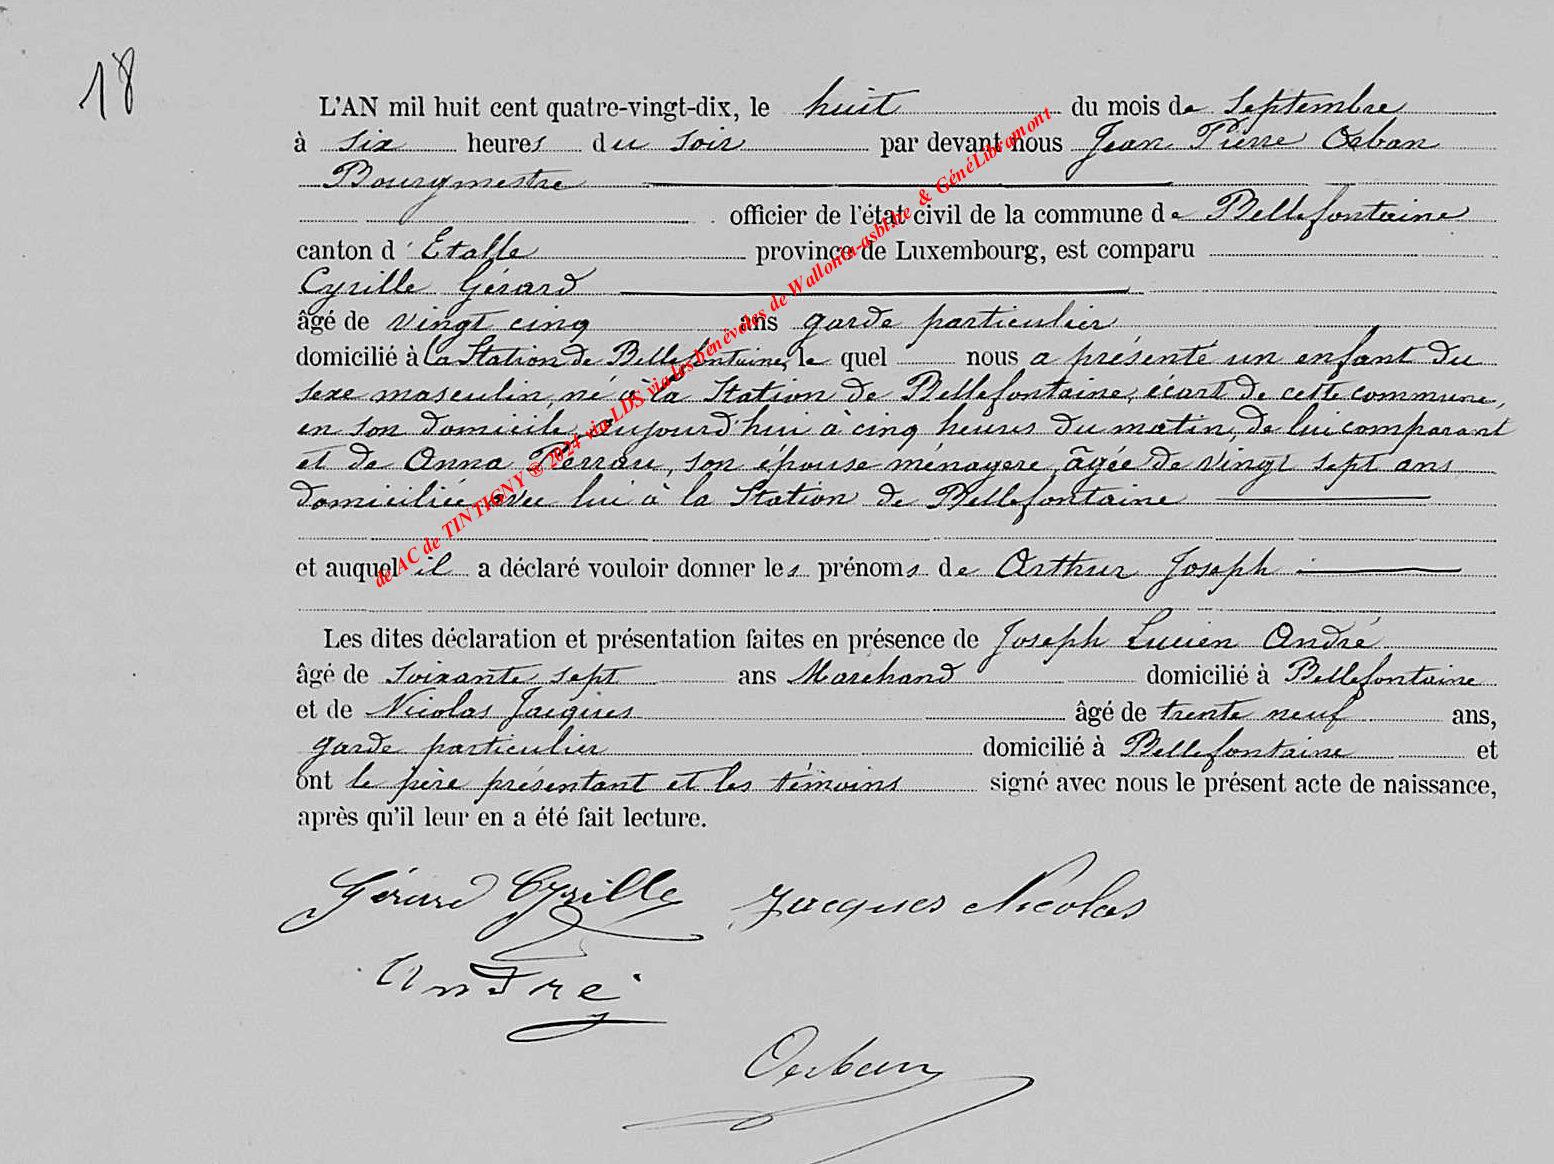 18
L'AN mil huit cent quatre-vingt-dix, le huit du mois de Septembre
à six heures du soir par devant nous Jean Pierre Orban
Bourgmestre
officier de l'état civil de la commune de Bellefontaine
canton d'Etalle province de Luxembourg, est comparu
Cyrille Gérard
âgé de vingt cinq ans garde particulier
domicilié à la Station de Bellefontaine, le quel nous a présenté un enfant du
sexe masculin, né à la Station de Bellefontaine, écart de cette commune,
en son domicile, aujourd'hui à cinq heures du matin, de lui comparant
et de Anna Pierrau, son épouse ménagère, âgée de vingt sept ans
domiciliée avec lui à la Station de Bellefontaine
et auquel il a déclaré vouloir donner les prénoms de Arthur Joseph
Les dites déclaration et présentation faites en présence de Joseph Lucien André
âgé de soixante sept ans Marchand domicilié à Bellefontaine
et de Nicolas Jacques âgé de trente neuf ans,
garde particulier domicilié à Bellefontaine et
ont le père présentant et les témoins signé avec nous le présent acte de naissance,
après qu'il leur en a été fait lecture.
Gérard Cyrille Jacques Nicolas
André
Orban
de AC de TINTIGNY © 2024 via LDS via les bénévoles de Wallonia-asbl.be & GénéLibramont